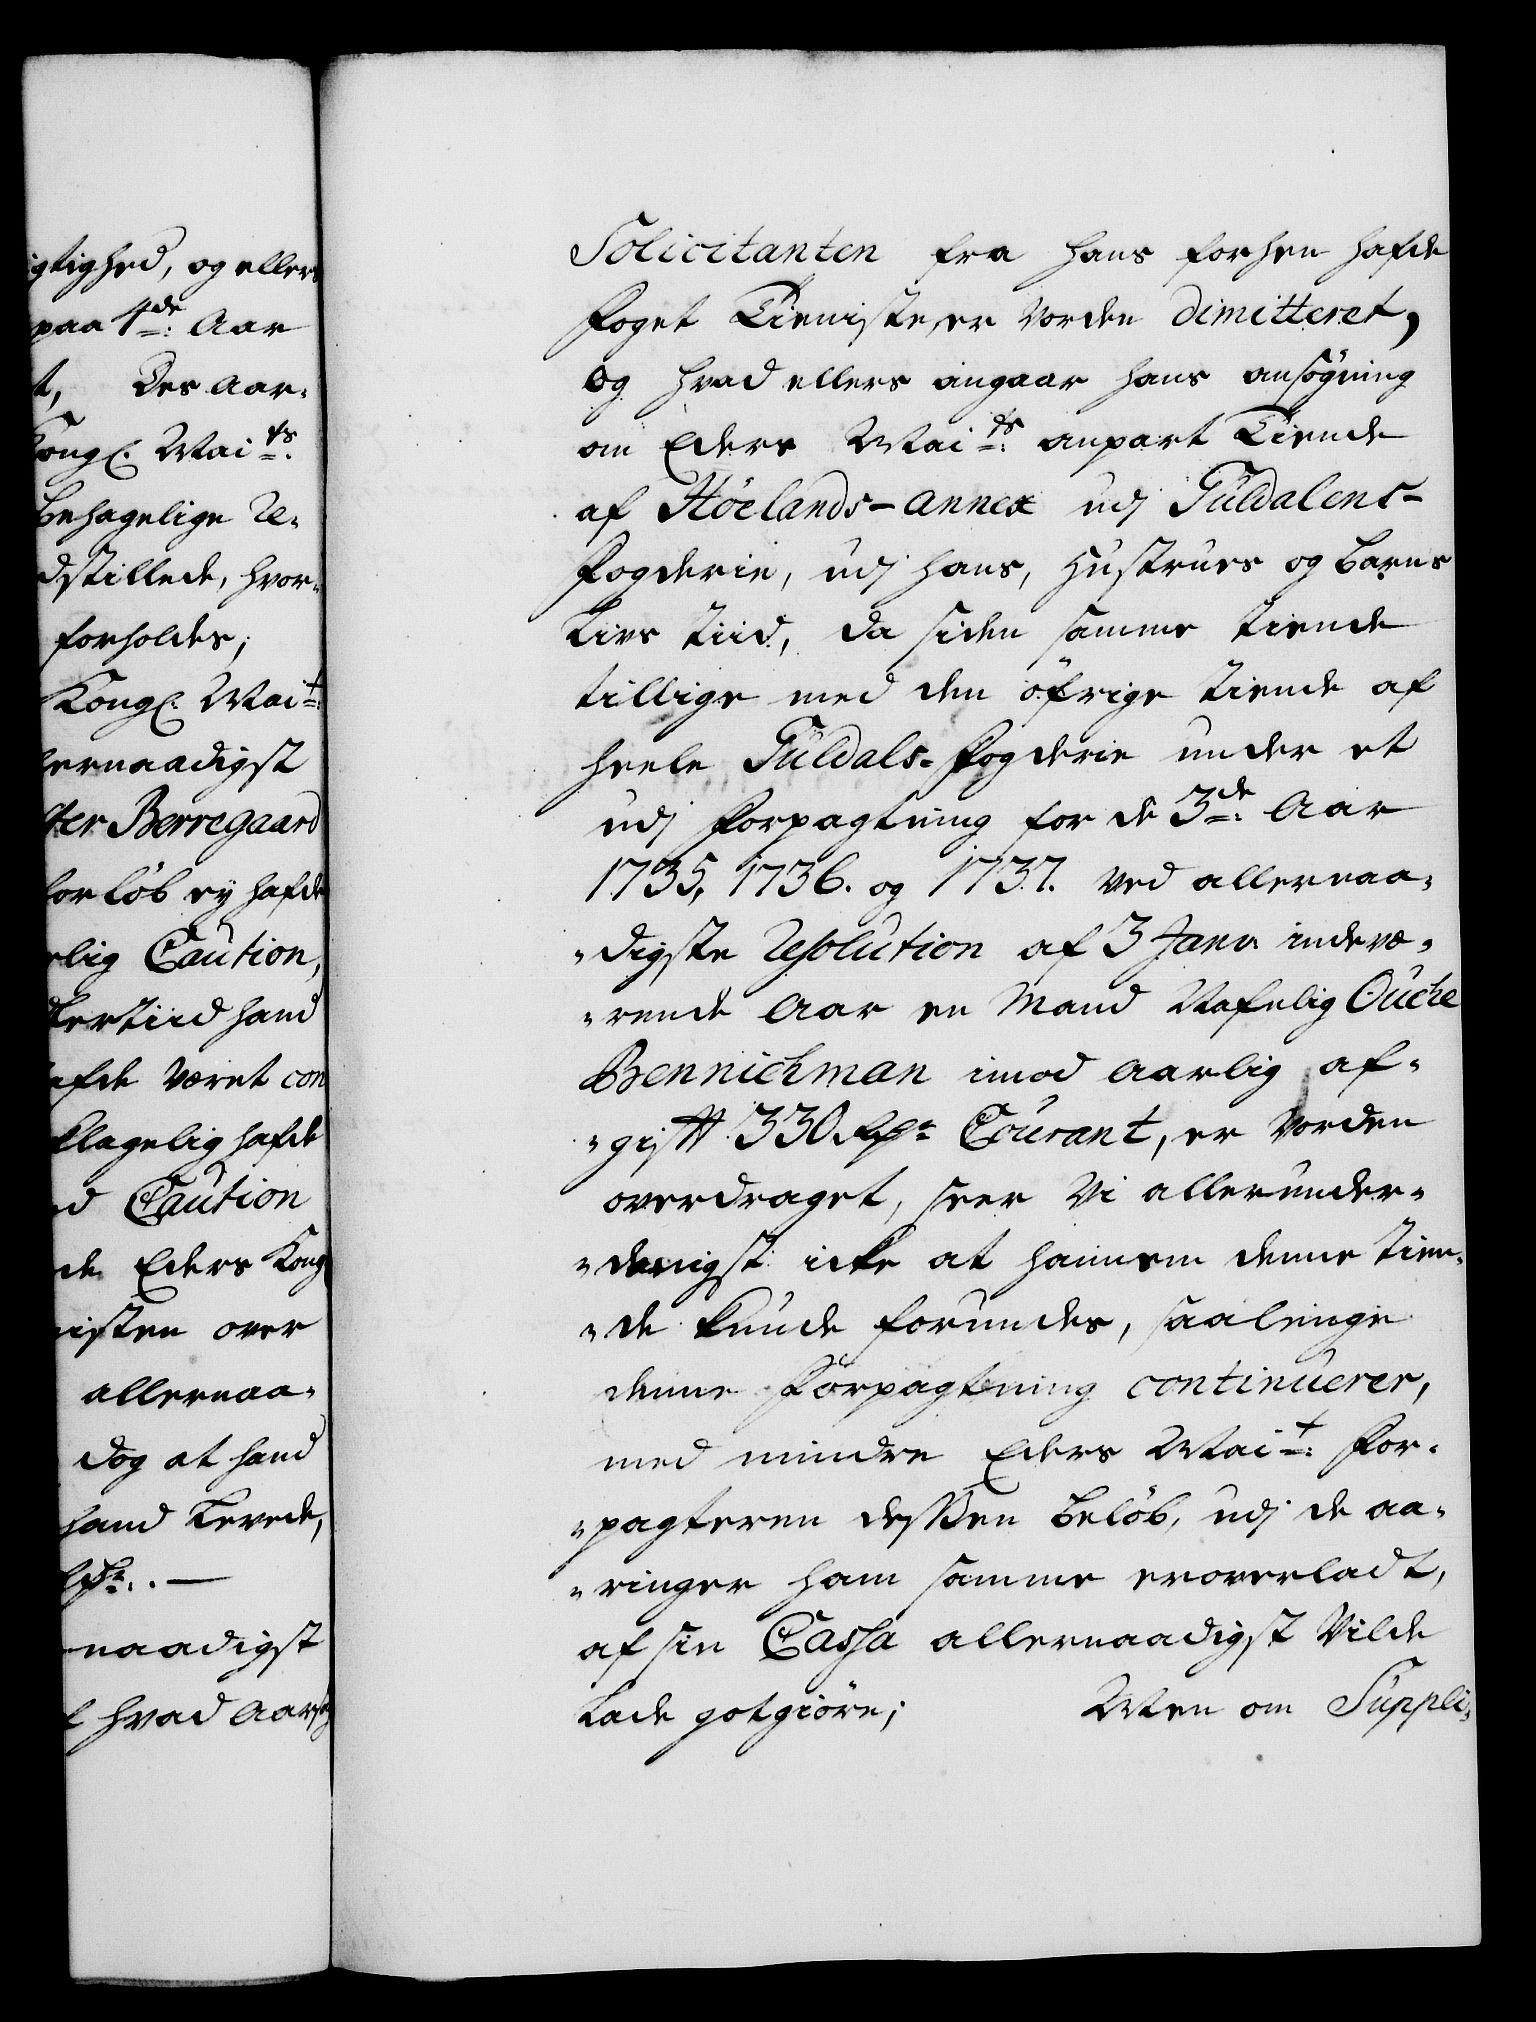 igtighed, og ellers
paa 4de: Aar
t, Des Aar-
Kongl. Mai:ts
behagelige Re-
dstillede, hvor-
forholdes;
Kongl. Mai:t
lernaadigst
ter Berregaard
forløb ey hafde
rlig Caution,
ertiid hand
afde været con
klagelig hafde
d Caution
de Eders Kong
isten over
allernaa-
dog at hand
hand levede,
naadigst
hvad Aars
Solicitanten fra hans forhen hafde
Foget Tieniste, er vorden dimitteret,
og hvad ellers angaar hans ansøgning
om Eders Mai:ts anpart Tiende
af Høelands-annex udj Guldalens-
Fogderie, udj hans, Hustrues og Barns
Livs tiid, da siden samme tiende
tillige med den øfrige tiende af
heele Guldals-Fogderie under et
udj Forpagtning for de 3de: Aar
1735, 1736. og 1737. ved allernaa-
-digste Resolution af 3 Janv: indevæ-
-rende Aar en Mand Nafnlig Ouche
Bennichman imod Aarlig af-
-gifft 330 Rdr Courant, er vorden
overdraget, seer Vi allerunder-
-danigst icke at hannem denne Tien-
-de kunde forundes, saalenge
denne Forpagtning continuerer,
med mindre Eders Mai:t For-
-pagteren dessen Beløb, udj de aa-
-ringer ham samme er overladt,
af sin Cassa allernaadigst Vilde
Lade gotgiøre; Men om Suppli-